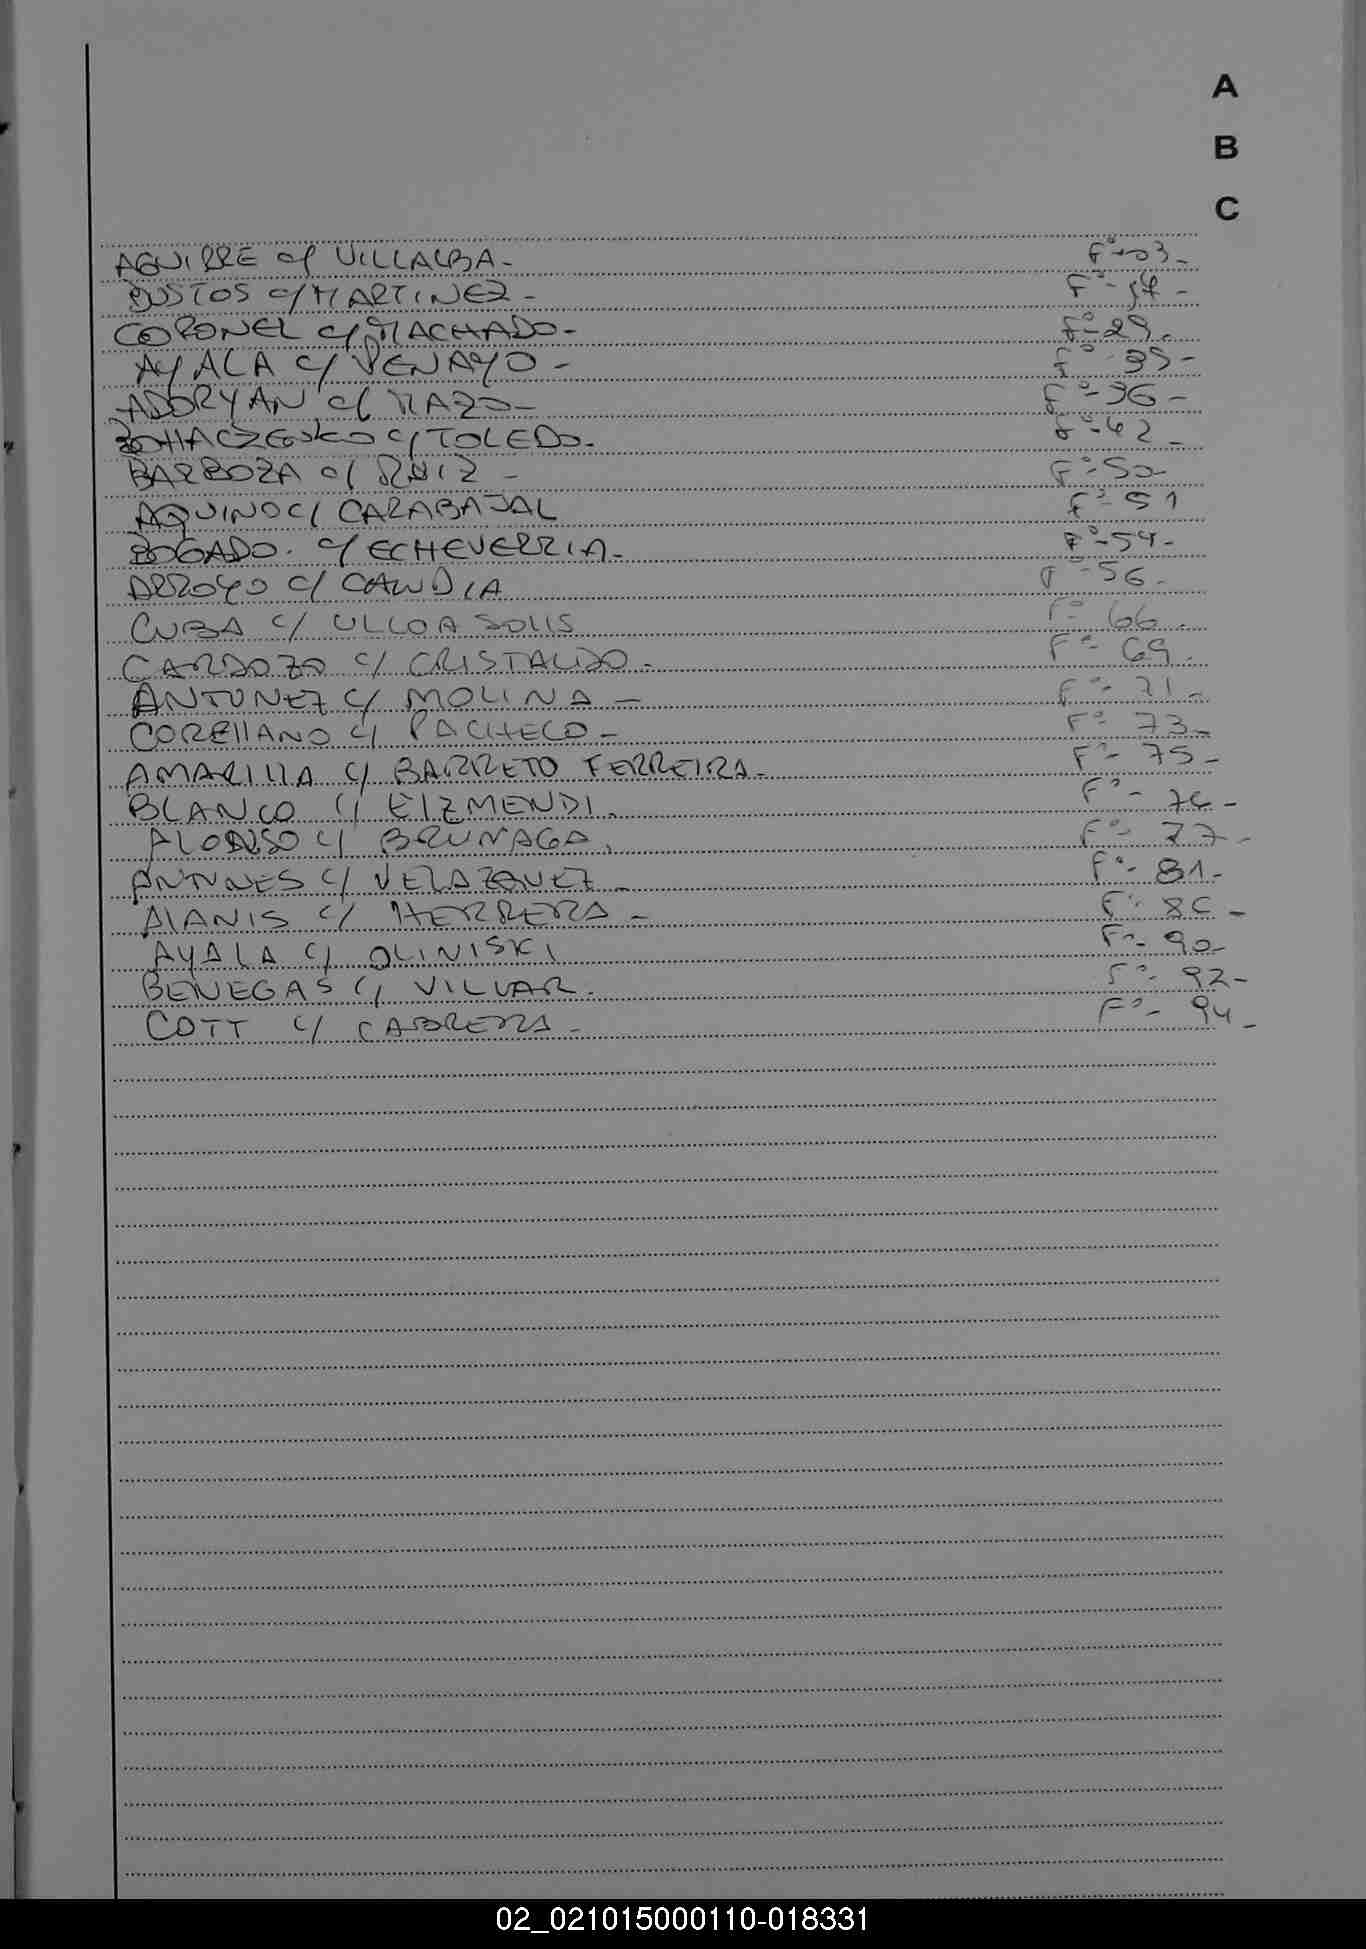 A
B
C
AGUIRRE c/ VILLALBA- Fº-03-
BUSTOS c/ MARTINEZ- Fº-
CORONEL c/ MACHADO- Fº-29-
AYALA c/ PENAYO- Fº-35-
ADORYAN c/ MAZO- Fº-36-
c/ TOLEDO- Fº-42-
BARBOZA c/ RUIZ- Fº-50-
AQUINO c/ CARABAJAL Fº-51
BOGADO. c/ ECHEVERRIA- Fº-54-
ARROYO c/ CANDIA Fº-56-
CUBA c/ ULLOA SOLIS Fº-66-
CARDOZO c/ CRISTALDO- Fº-69-
ANTUNEZ c/ MOLINA- Fº-71-
CORELLANO c/ PACHECO- Fº-73-
AMARILLA c/ BARRETO FERREIRA- Fº-75-
BLANCO c/ EIZMENDI. Fº-76-
ALONSO c/ BRUNAGA. Fº-77-
ANTUNES c/ VELAZQUEZ- Fº-81-
ALANIS c/ HERRERA- Fº-86-
AYALA c/ OLINISKI Fº-90-
BENEGAS c/ VILLAR. Fº-92-
COTT c/ CABRERA- Fº-94-
02_021015000110-018331